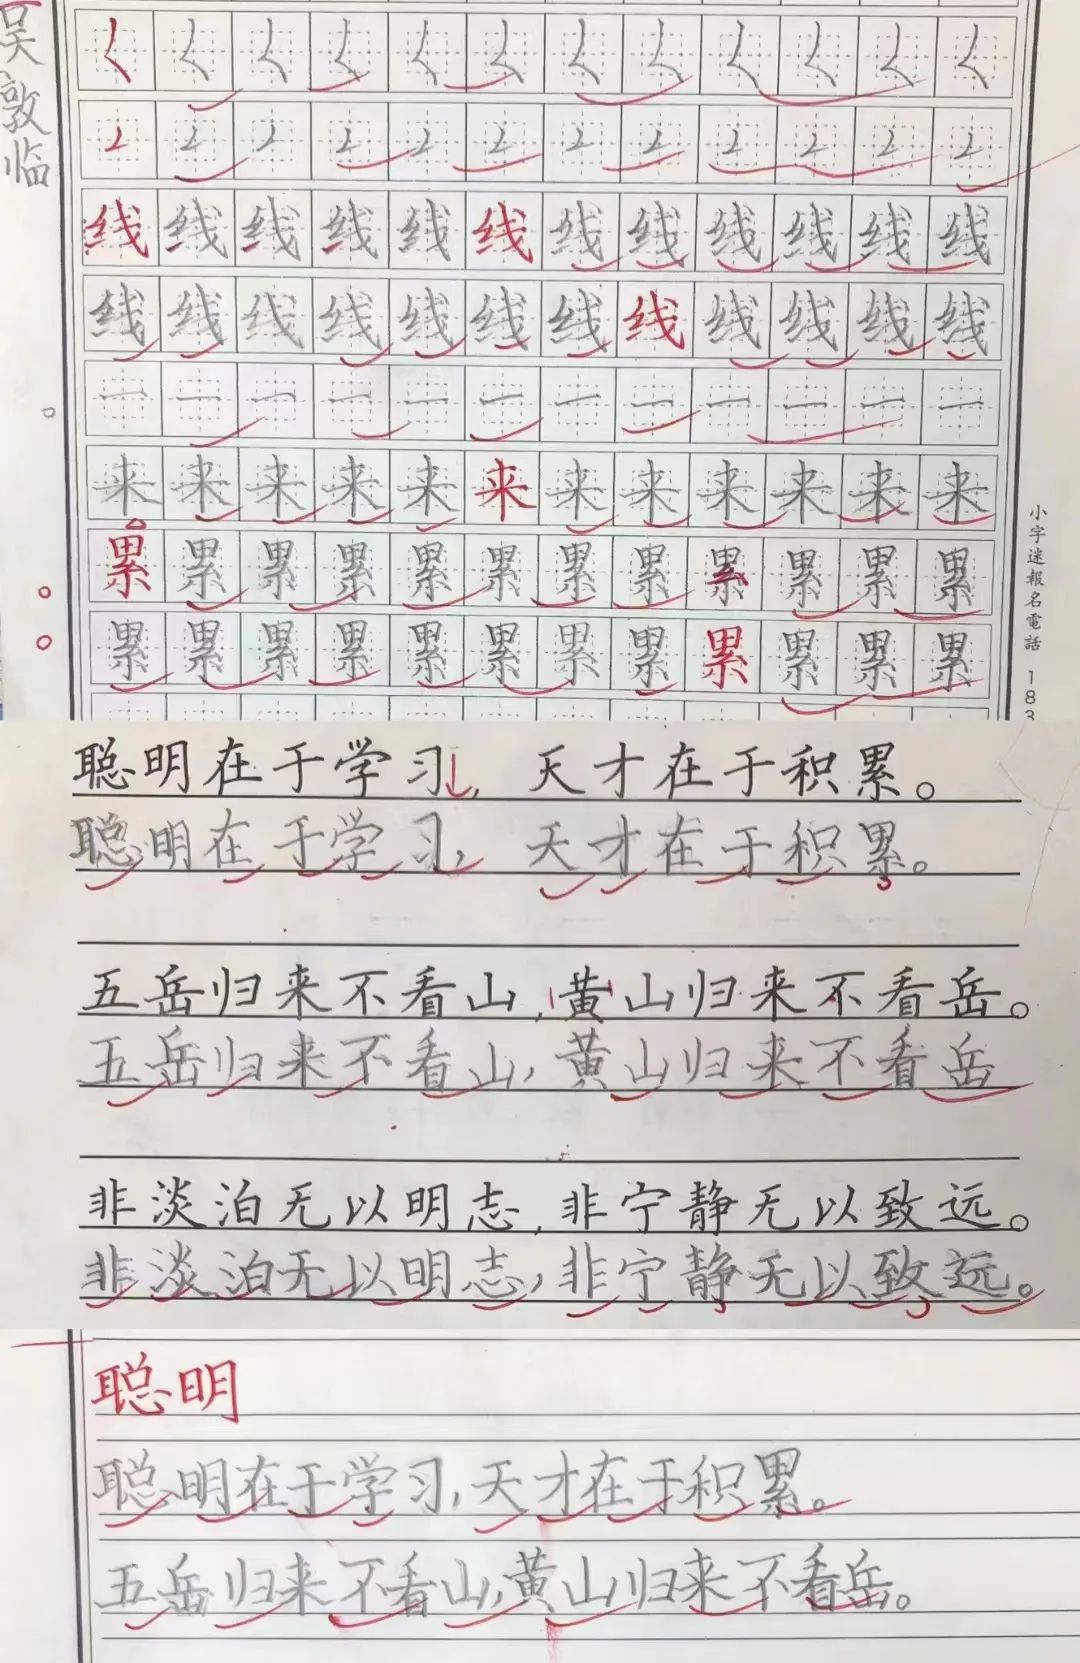 吴敦临
く く く く く く く く く く く く
线 线 线 线 线 线 线 线 线 线 线 线
线 线 线 线 线 线 线 线 线 线 线 线
一 一 一 一 一 一 一 一 一 一 一 一
来 来 来 来 来 来 来 来 来 来 来 来
累 累 累 累 累 累 累 累 累 累 累 累
累 累 累 累 累 累 累 累 累 累 累 累
小字迷報名電話 183
聪明在于学习,天才在于积累。
聪明在于学习,天才在于积累。
五岳归来不看山,黄山归来不看岳。
五岳归来不看山,黄山归来不看岳
非淡泊无以明志,非宁静无以致远。
非淡泊无以明志,非宁静无以致远。
聪明
聪明在于学习,天才在于积累。
五岳归来不看山,黄山归来不看岳。